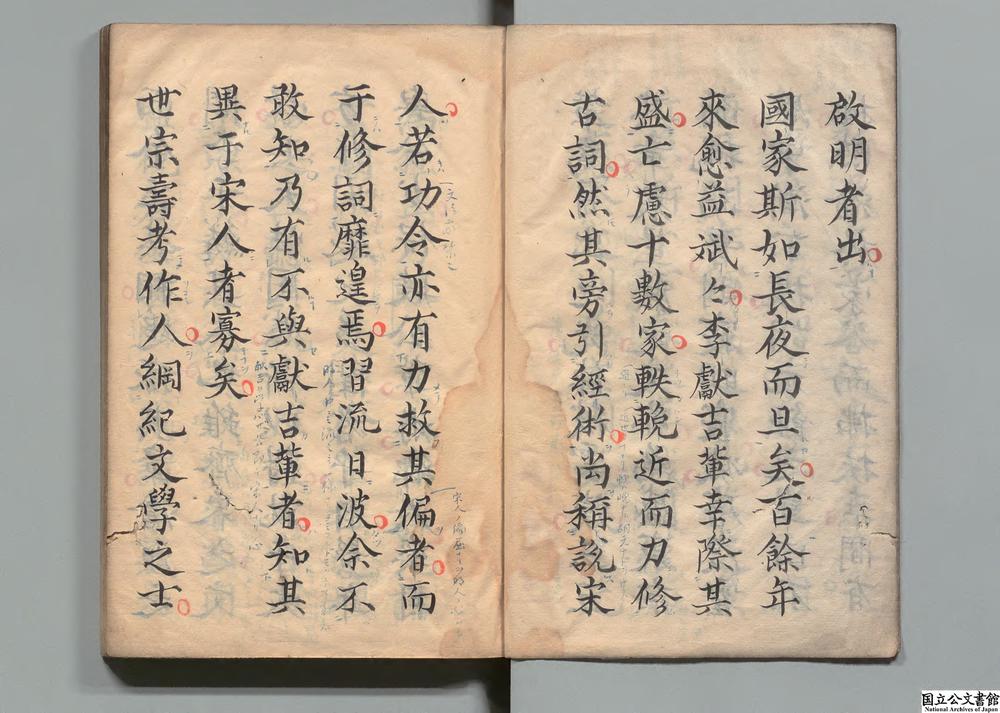 啟明者出
國家斯如長夜而旦矣百餘年
來愈益斌々李獻吉軰幸際其
盛亡慮十數家軼輓近而力修
古詞然其旁引經術尚稱說宋
人若功令亦有力救其偏者而
于修詞靡遑焉習流日波余不
敢知乃有不與獻吉軰者知其
異于宋人者寡矣
世宗壽考作人綱紀文學之士
国立公文書館
National Archives of Japan